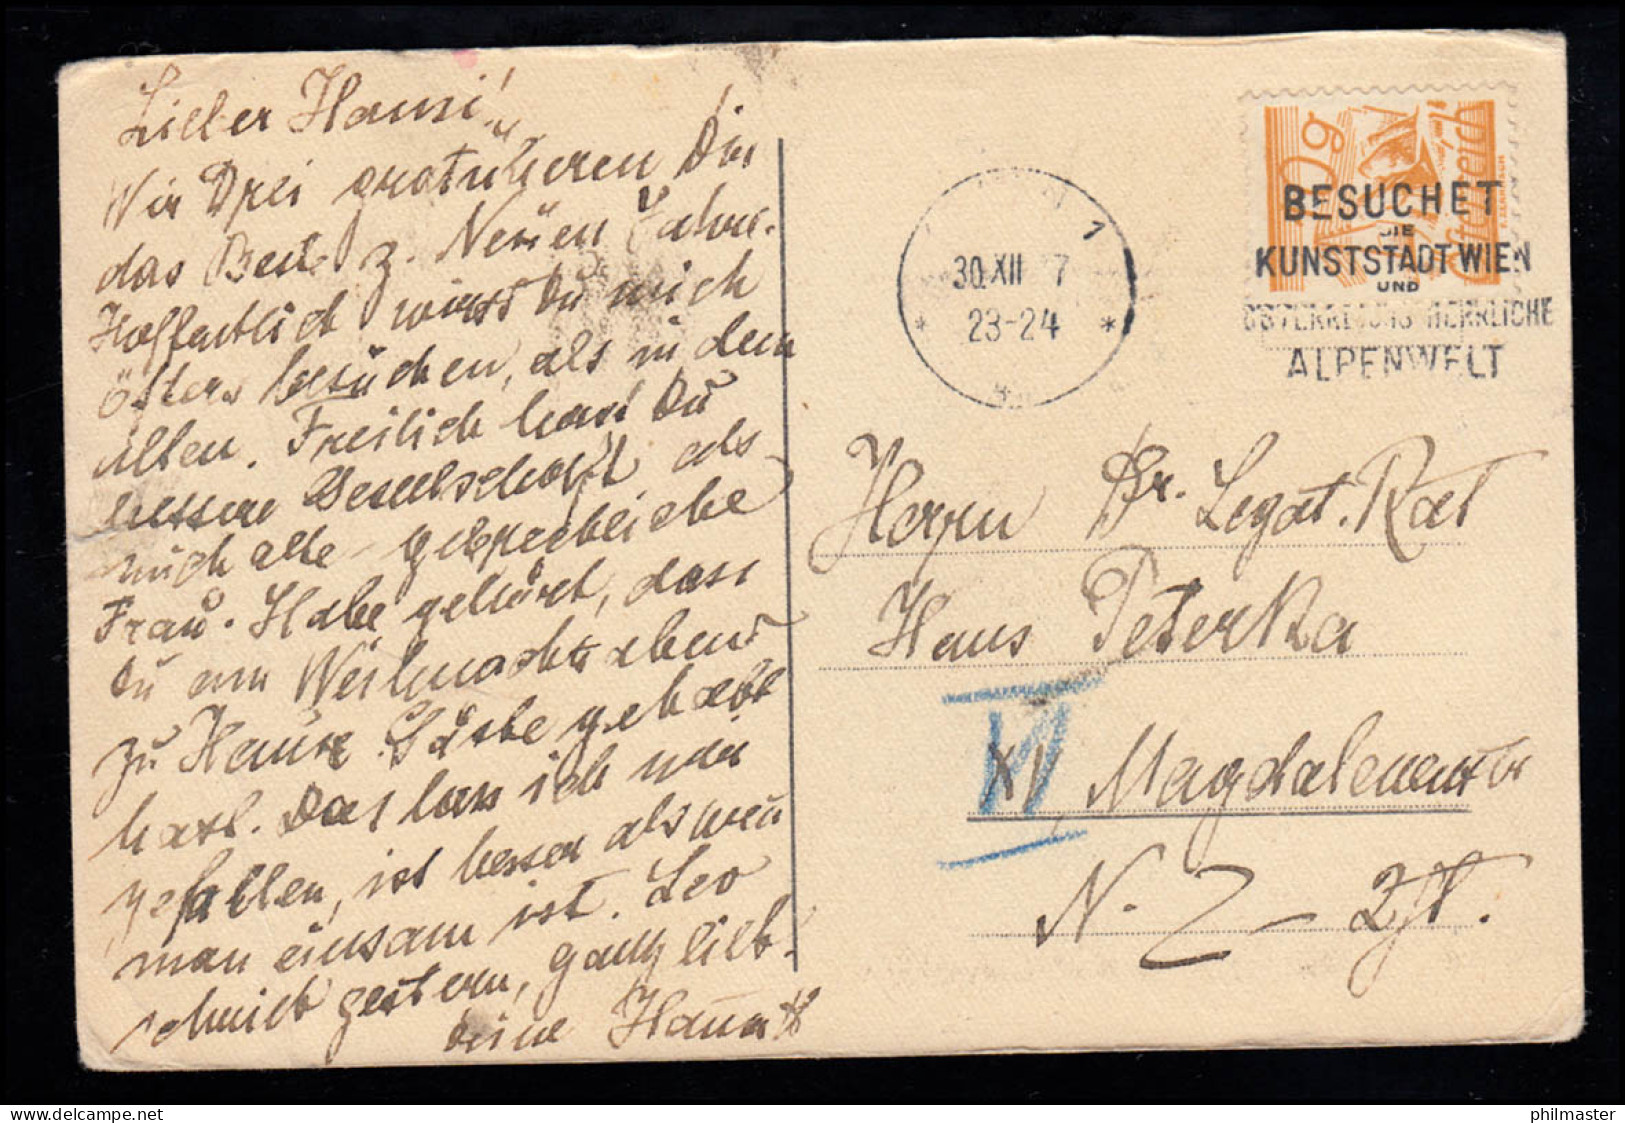 Lieber Hansi!
Wir Drei gratulieren Dir
das Beste z. Neuen Jahre.
Hoffentlich wirst Du mich
öfters besuchen, als in dem
alten. Freilich hast Du
bessere Gesellschaft als
mich alte gebrechliche
Frau. Habe gehört, dass
Du am Weihnachtsabend
zu Hause Gäste gehabt
hast. Das lass ich mir
gefallen, ist besser als wenn
man einsam ist. Leo
schrieb gestern, ganz lieb.
Deine
1
30 XII 7
23-24
* *
4
10g
Österreich
BESUCHET
DIE
KUNSTSTADT WIEN
UND
ÖSTERREICHS HERRLICHE
ALPENWELT
Herrn Dr. Legat. Rat
Hans Peterka
VI
XII Magdalenenstr
N. 2 -
philmaster